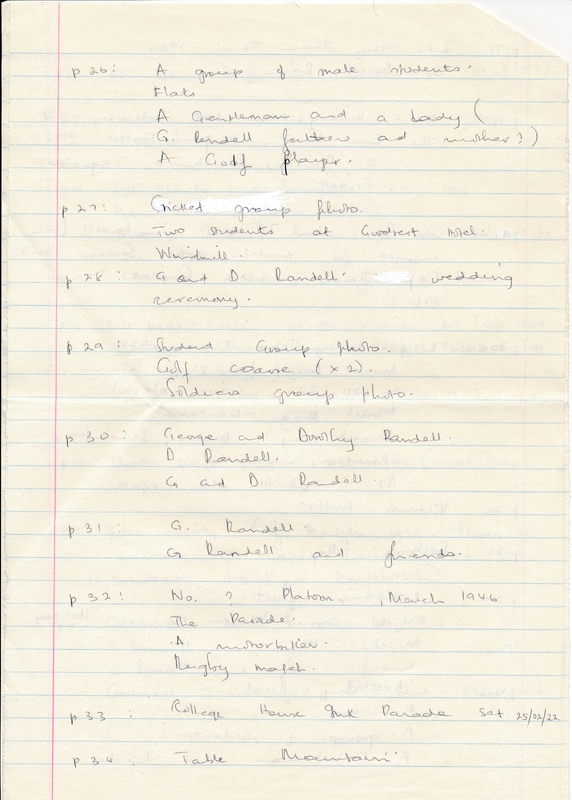 p 26: A group of male students.
Flats
A Gentleman and a Lady (
G. Randell father ad mother?)
A Golf player.
p 27: Cricket group photo.
Two students at Goodrest Hotel.
Windmill.
p 28: G and D. Randell. wedding
ceremony.
p 29: Student Group photo.
Golf coarse (x 2).
Soldiers group photo.
p 30: George and Dorothy Randell.
D Randell.
G and D. Randell.
p 31 G. Randell.
G Randell and friends.
p 32: No. ? Platoon , March 1946
The Parade.
A motorbiker.
Rugby match.
p 33 : College House Parade Sat 25/02/22
p 34 : Table Mountain